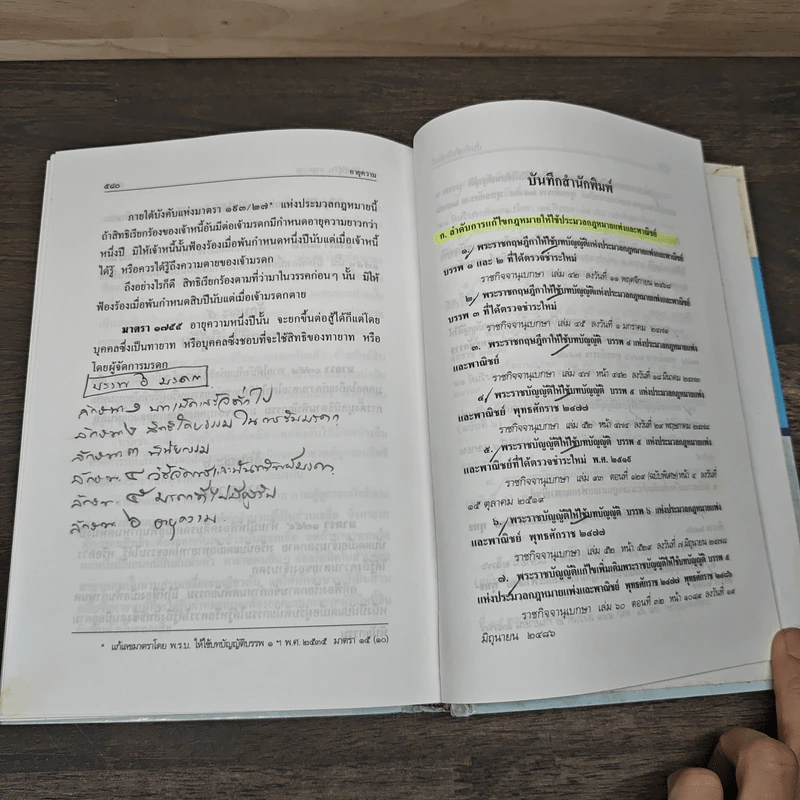 ๕๘๐
อายุความ
ภายใต้บังคับแห่งมาตรา ๑๙๓/๒๗* แห่งประมวลกฎหมายนี้
ถ้าสิทธิเรียกร้องของเจ้าหนี้อันมีต่อเจ้ามรดกมีกำหนดอายุความยาวกว่า
หนึ่งปี มิให้เจ้าหนี้นั้นฟ้องร้องเมื่อพ้นกำหนดหนึ่งปีนับแต่เมื่อเจ้าหนี้
ได้รู้ หรือควรได้รู้ถึงความตายของเจ้ามรดก
ถึงอย่างไรก็ดี สิทธิเรียกร้องตามที่ว่ามาในวรรคก่อนๆ นั้น มิให้
ฟ้องร้องเมื่อพ้นกำหนดสิบปีนับแต่เมื่อเจ้ามรดกตาย
มาตรา ๑๗๕๕ อายุความหนึ่งปีนั้น จะยกขึ้นต่อสู้ได้ก็แต่โดย
บุคคลซึ่งเป็นทายาท หรือบุคคลซึ่งชอบที่จะใช้สิทธิของทายาท หรือ
โดยผู้จัดการมรดก
บรรพ ๖ มรดก
ลักษณะ ๑
ลักษณะ ๒ สิทธิโดยธรรมในการรับมรดก
ลักษณะ ๓ พินัยกรรม
ลักษณะ ๔
ลักษณะ ๕ มรดกที่ไม่มีผู้รับ
ลักษณะ ๖ อายุความ
* แก้เลขมาตราโดย พ.ร.บ. ให้ใช้บทบัญญัติบรรพ ๑ ฯ พ.ศ. ๒๕๓๕ มาตรา ๑๕ (๑๐)
บันทึกสำนักพิมพ์
ก. ลำดับการแก้ไขกฎหมายให้ใช้ประมวลกฎหมายแพ่งและพาณิชย์
๑. พระราชกฤษฎีกาให้ใช้บทบัญญัติแห่งประมวลกฎหมายแพ่งและพาณิชย์
บรรพ ๑ และ ๒ ที่ได้ตรวจชำระใหม่
ราชกิจจานุเบกษา เล่ม ๔๒ ลงวันที่ ๑๑ พฤศจิกายน ๒๔๖๘
๒. พระราชกฤษฎีกาให้ใช้บทบัญญัติแห่งประมวลกฎหมายแพ่งและพาณิชย์
บรรพ ๓ ที่ได้ตรวจชำระใหม่
ราชกิจจานุเบกษา เล่ม ๔๕ ลงวันที่ ๑ มกราคม ๒๔๗๑
๓. พระราชกฤษฎีกาให้ใช้บทบัญญัติ บรรพ ๔ แห่งประมวลกฎหมายแพ่ง
และพาณิชย์
ราชกิจจานุเบกษา เล่ม ๔๗ หน้า ๔๔๒ ลงวันที่ ๑๘ มีนาคม ๒๔๗๓
๔. พระราชบัญญัติให้ใช้บทบัญญัติ บรรพ ๕ แห่งประมวลกฎหมายแพ่ง
และพาณิชย์ พุทธศักราช ๒๔๗๗
ราชกิจจานุเบกษา เล่ม ๕๒ หน้า ๔๗๔ ลงวันที่ ๒๙ พฤษภาคม ๒๔๗๘
๕. พระราชบัญญัติให้ใช้บทบัญญัติ บรรพ ๕ แห่งประมวลกฎหมายแพ่ง
และพาณิชย์ที่ได้ตรวจชำระใหม่ พ.ศ. ๒๕๑๙
ราชกิจจานุเบกษา เล่ม ๙๓ ตอนที่ ๑๒๙ (ฉบับพิเศษ) หน้า ๔ ลงวันที่
๑๕ ตุลาคม ๒๕๑๙
๖. พระราชบัญญัติให้ใช้บทบัญญัติ บรรพ ๖ แห่งประมวลกฎหมายแพ่ง
และพาณิชย์ พุทธศักราช ๒๔๗๗
ราชกิจจานุเบกษา เล่ม ๕๒ หน้า ๕๒๙ ลงวันที่ ๗ มิถุนายน ๒๔๗๘
๗. พระราชบัญญัติแก้ไขเพิ่มเติมพระราชบัญญัติให้ใช้บทบัญญัติ บรรพ ๕
แห่งประมวลกฎหมายแพ่งและพาณิชย์ พุทธศักราช ๒๔๗๗ พุทธศักราช ๒๔๘๖
ราชกิจจานุเบกษา เล่ม ๖๐ ตอนที่ ๓๒ หน้า ๑๐๘๙ ลงวันที่ ๑๙
มิถุนายน ๒๔๘๖